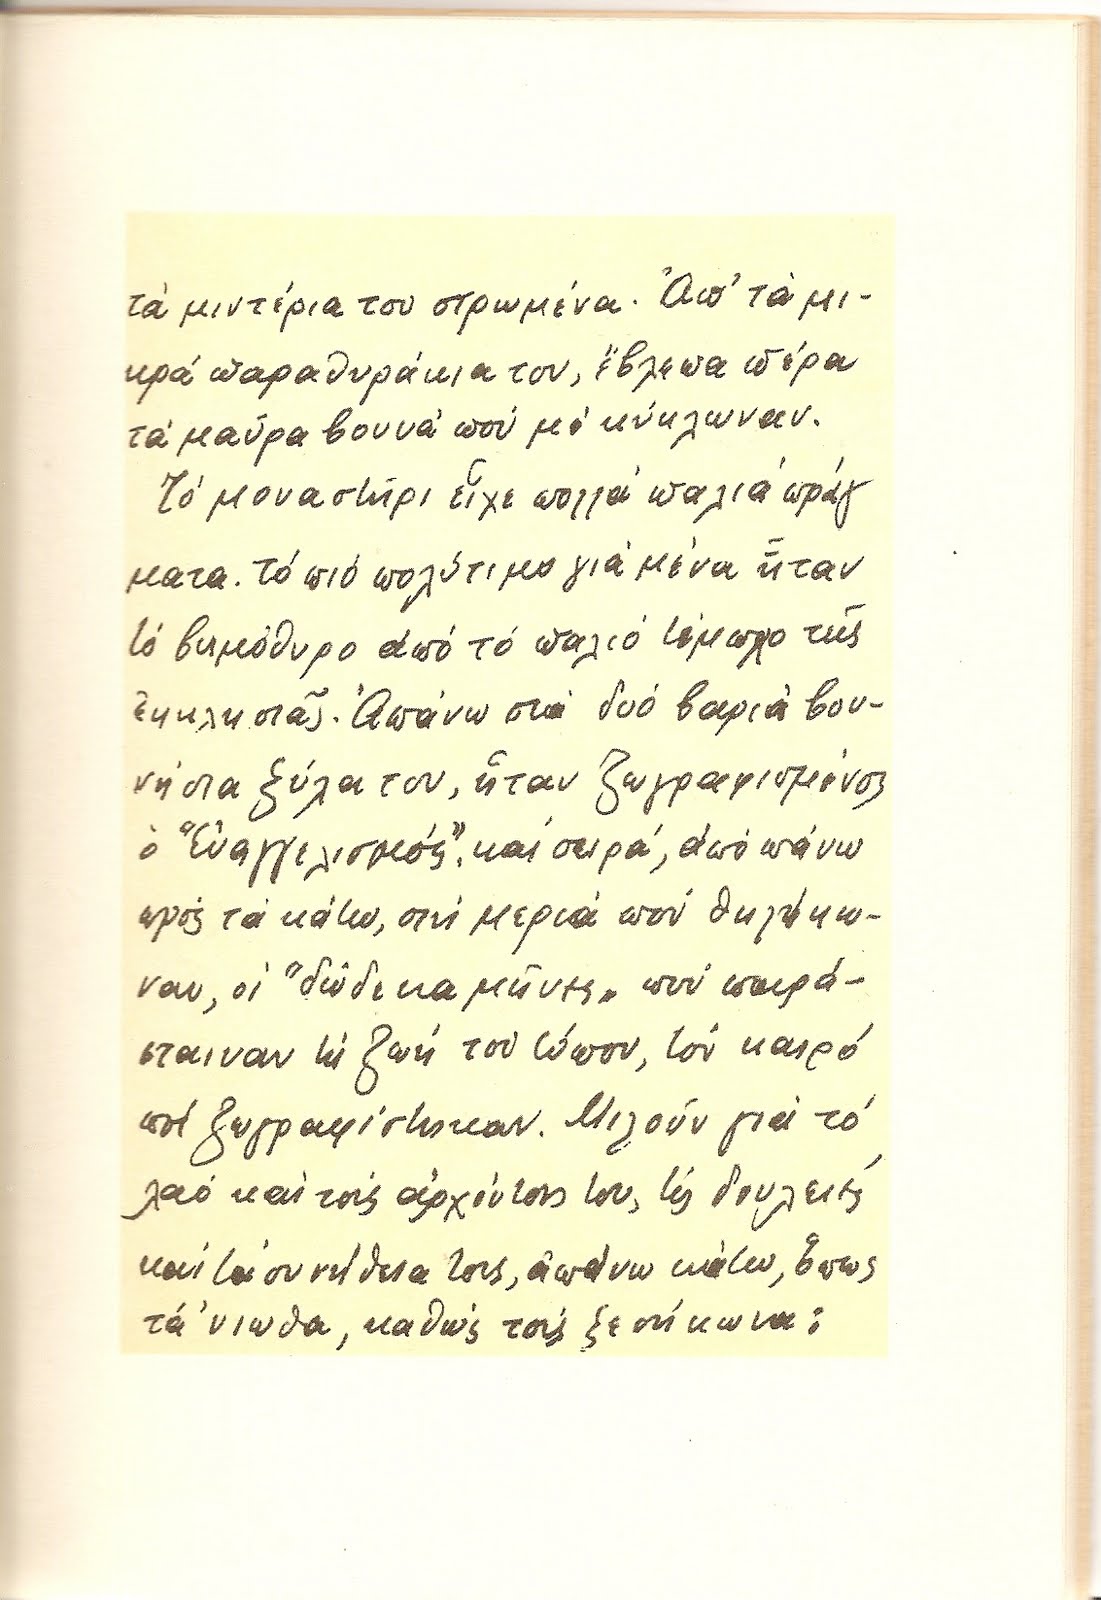 τά μιντέρια του στρωμένα. Ἀπ' τά μι-
κρά παραθυράκια του, ἔβλεπα πέρα
τά μαῦρα βουνά πού μέ κύκλωναν.
Τό μοναστῆρι εἶχε πολλά παλιά πράγ
ματα. τό πιό πολύτιμο γιά μένα ἦταν
τό βημόθυρο ἀπό τό παλιό τέμπλο τῆς
ἐκκλησιᾶς. Ἀπάνω στά δυό βαριά βου-
νήσια ξύλα του, ἦταν ζωγραφισμένος
ὁ "Εὐαγγελισμός", καί σειρά, ἀπό πάνω
πρός τά κάτω, στή μεριά πού θηλύκω-
ναν, οἱ "δώδεκα μῆνες" πού παρά-
σταιναν τή ζωή τοῦ τόπου, τόν καιρό
πού ζωγραφίστηκαν. Μιλοῦν γιά τό
λαό καί τούς ἀρχόντους του, τίς δουλειές
καί τά συνήθεια τους, ἀπάνω κάτω, ὅπως
τά 'νιωθα, καθώς τούς ξεσήκωνα: